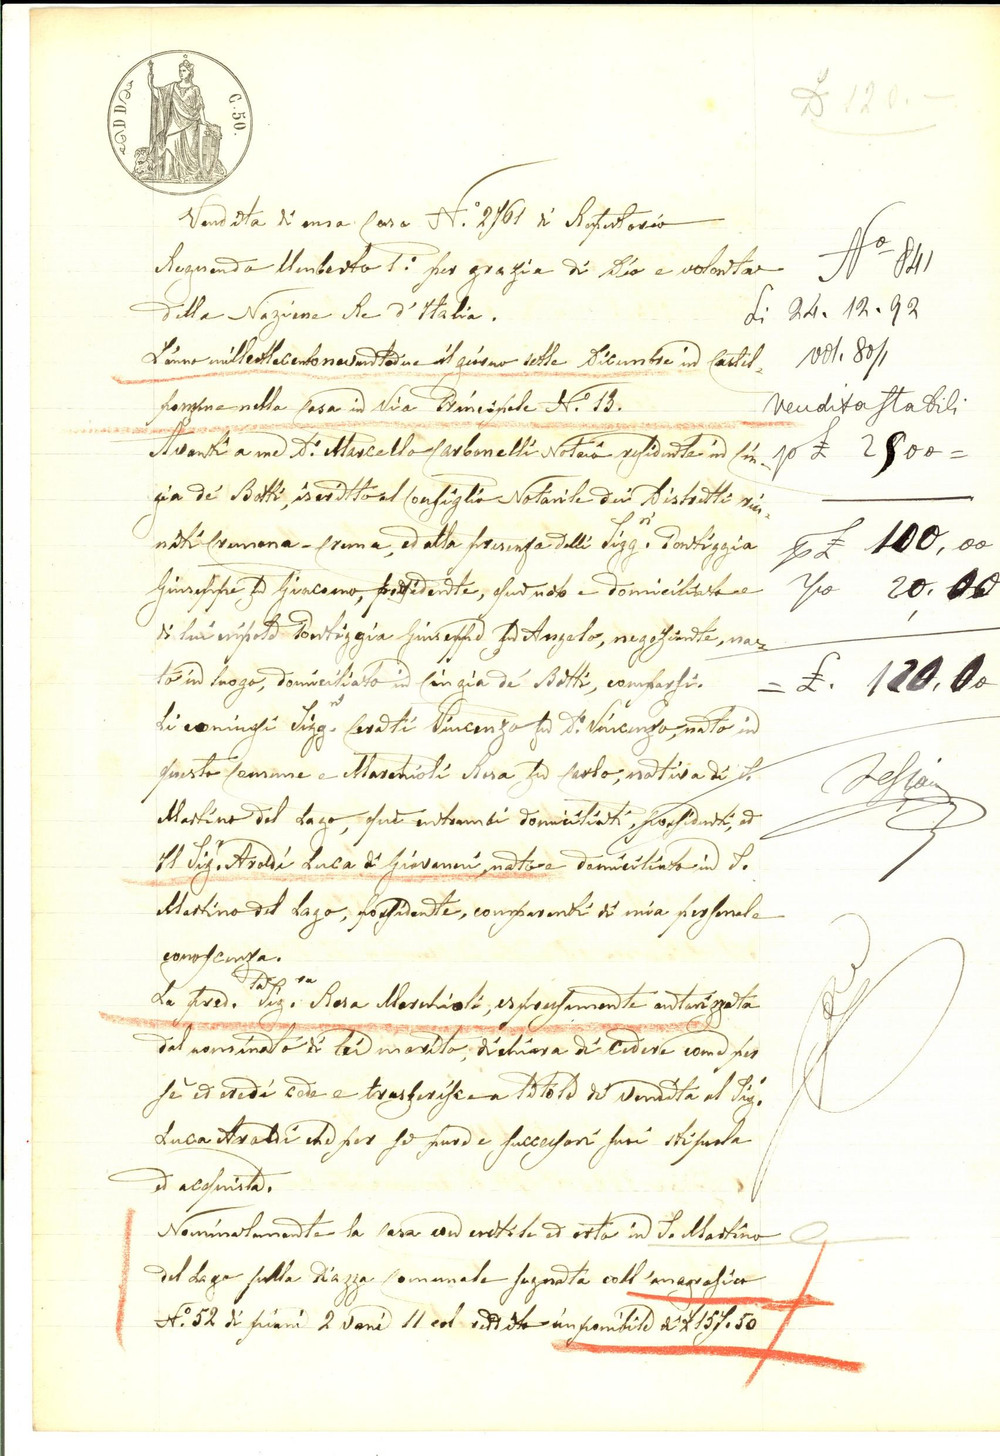 C. 50.
£ 120.-
Vendita di una Casa N.° 2761 di Repertorio
Regnando Umberto I.° per grazia di Dio e volontà
della Nazione Re d'Italia.
L'anno milleottocentonovantadue il giorno sette Dicembre in Castel-
ponzone nella Casa in Via Principale N.° 13.
Avanti a me Dr. Marcello Carbonelli Notaio residente in Cin-
gia de' Botti, iscritto al Consiglio Notarile dei Distretti riu-
niti Cremona - Crema, ed alla presenza delli Sigg.ri Pontiggia
Giuseppe fu Giacomo, possidente, qui nato e domiciliato e
di lui nipote Pontiggia Giuseppe fu Angelo, negoziante, na-
to in luogo, domiciliato in Cingia de' Botti, comparsi.
Li coniugi Sigg.ri Cerati Vincenzo fu Dr. Vincenzo, nato in
questo Comune e Marchioli Rosa fu Carlo, nativa di S.
Martino del Lago, qui entrambi domiciliati, possidenti, ed
il Sig.r Araldi Luca di Giovanni, nato e domiciliato in S.
Martino del Lago, possidente, comparenti di mia personale
conoscenza.
La pred.ta Sig.ra Rosa Marchioli, espressamente autorizzata
dal nominato di lei marito, dichiara di cedere come per
sé ed eredi cede e trasferisce a titolo di vendita al Sig.r
Luca Araldi che per sé pure e successori suoi stipula
ed acquista.
Nominatamente la casa con cortile ed orto in S. Martino
del Lago sulla Piazza Comunale segnata coll'anagrafico
N.° 52 di piani 2 vani 11 col reddito imponibile di £ 157.50
N° 841
Li 24. 12. 92
vol. 80
Vendita stabili
p £ 2500 =
p £ 100,00
20.00
= £. 120.00